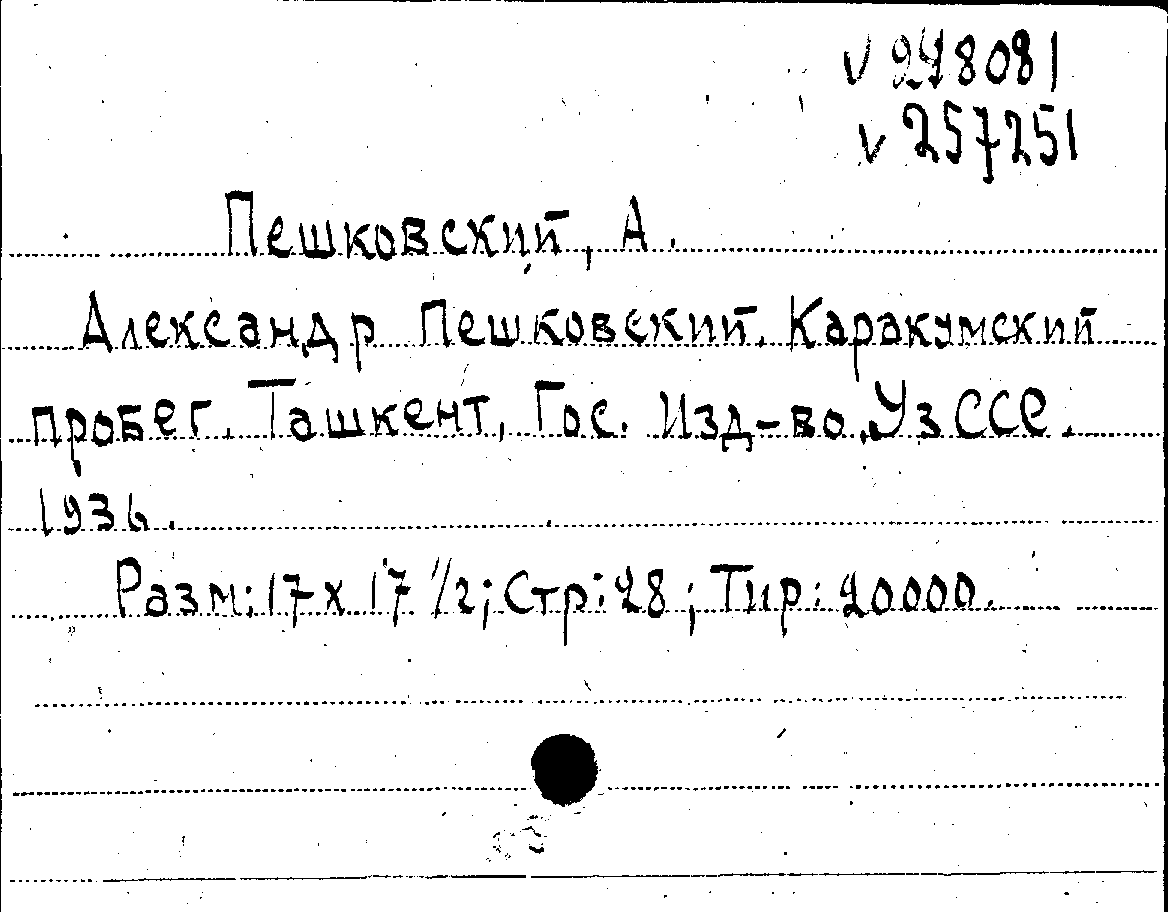 v 248081
v 257251
Пешковский, А.
Александр Пешковский. Каракумский
пробег. Ташкент, Гос. Изд-во УзССР.
1936.
Разм: 17 x 17 1/2; Стр: 28; Тир: 20000.